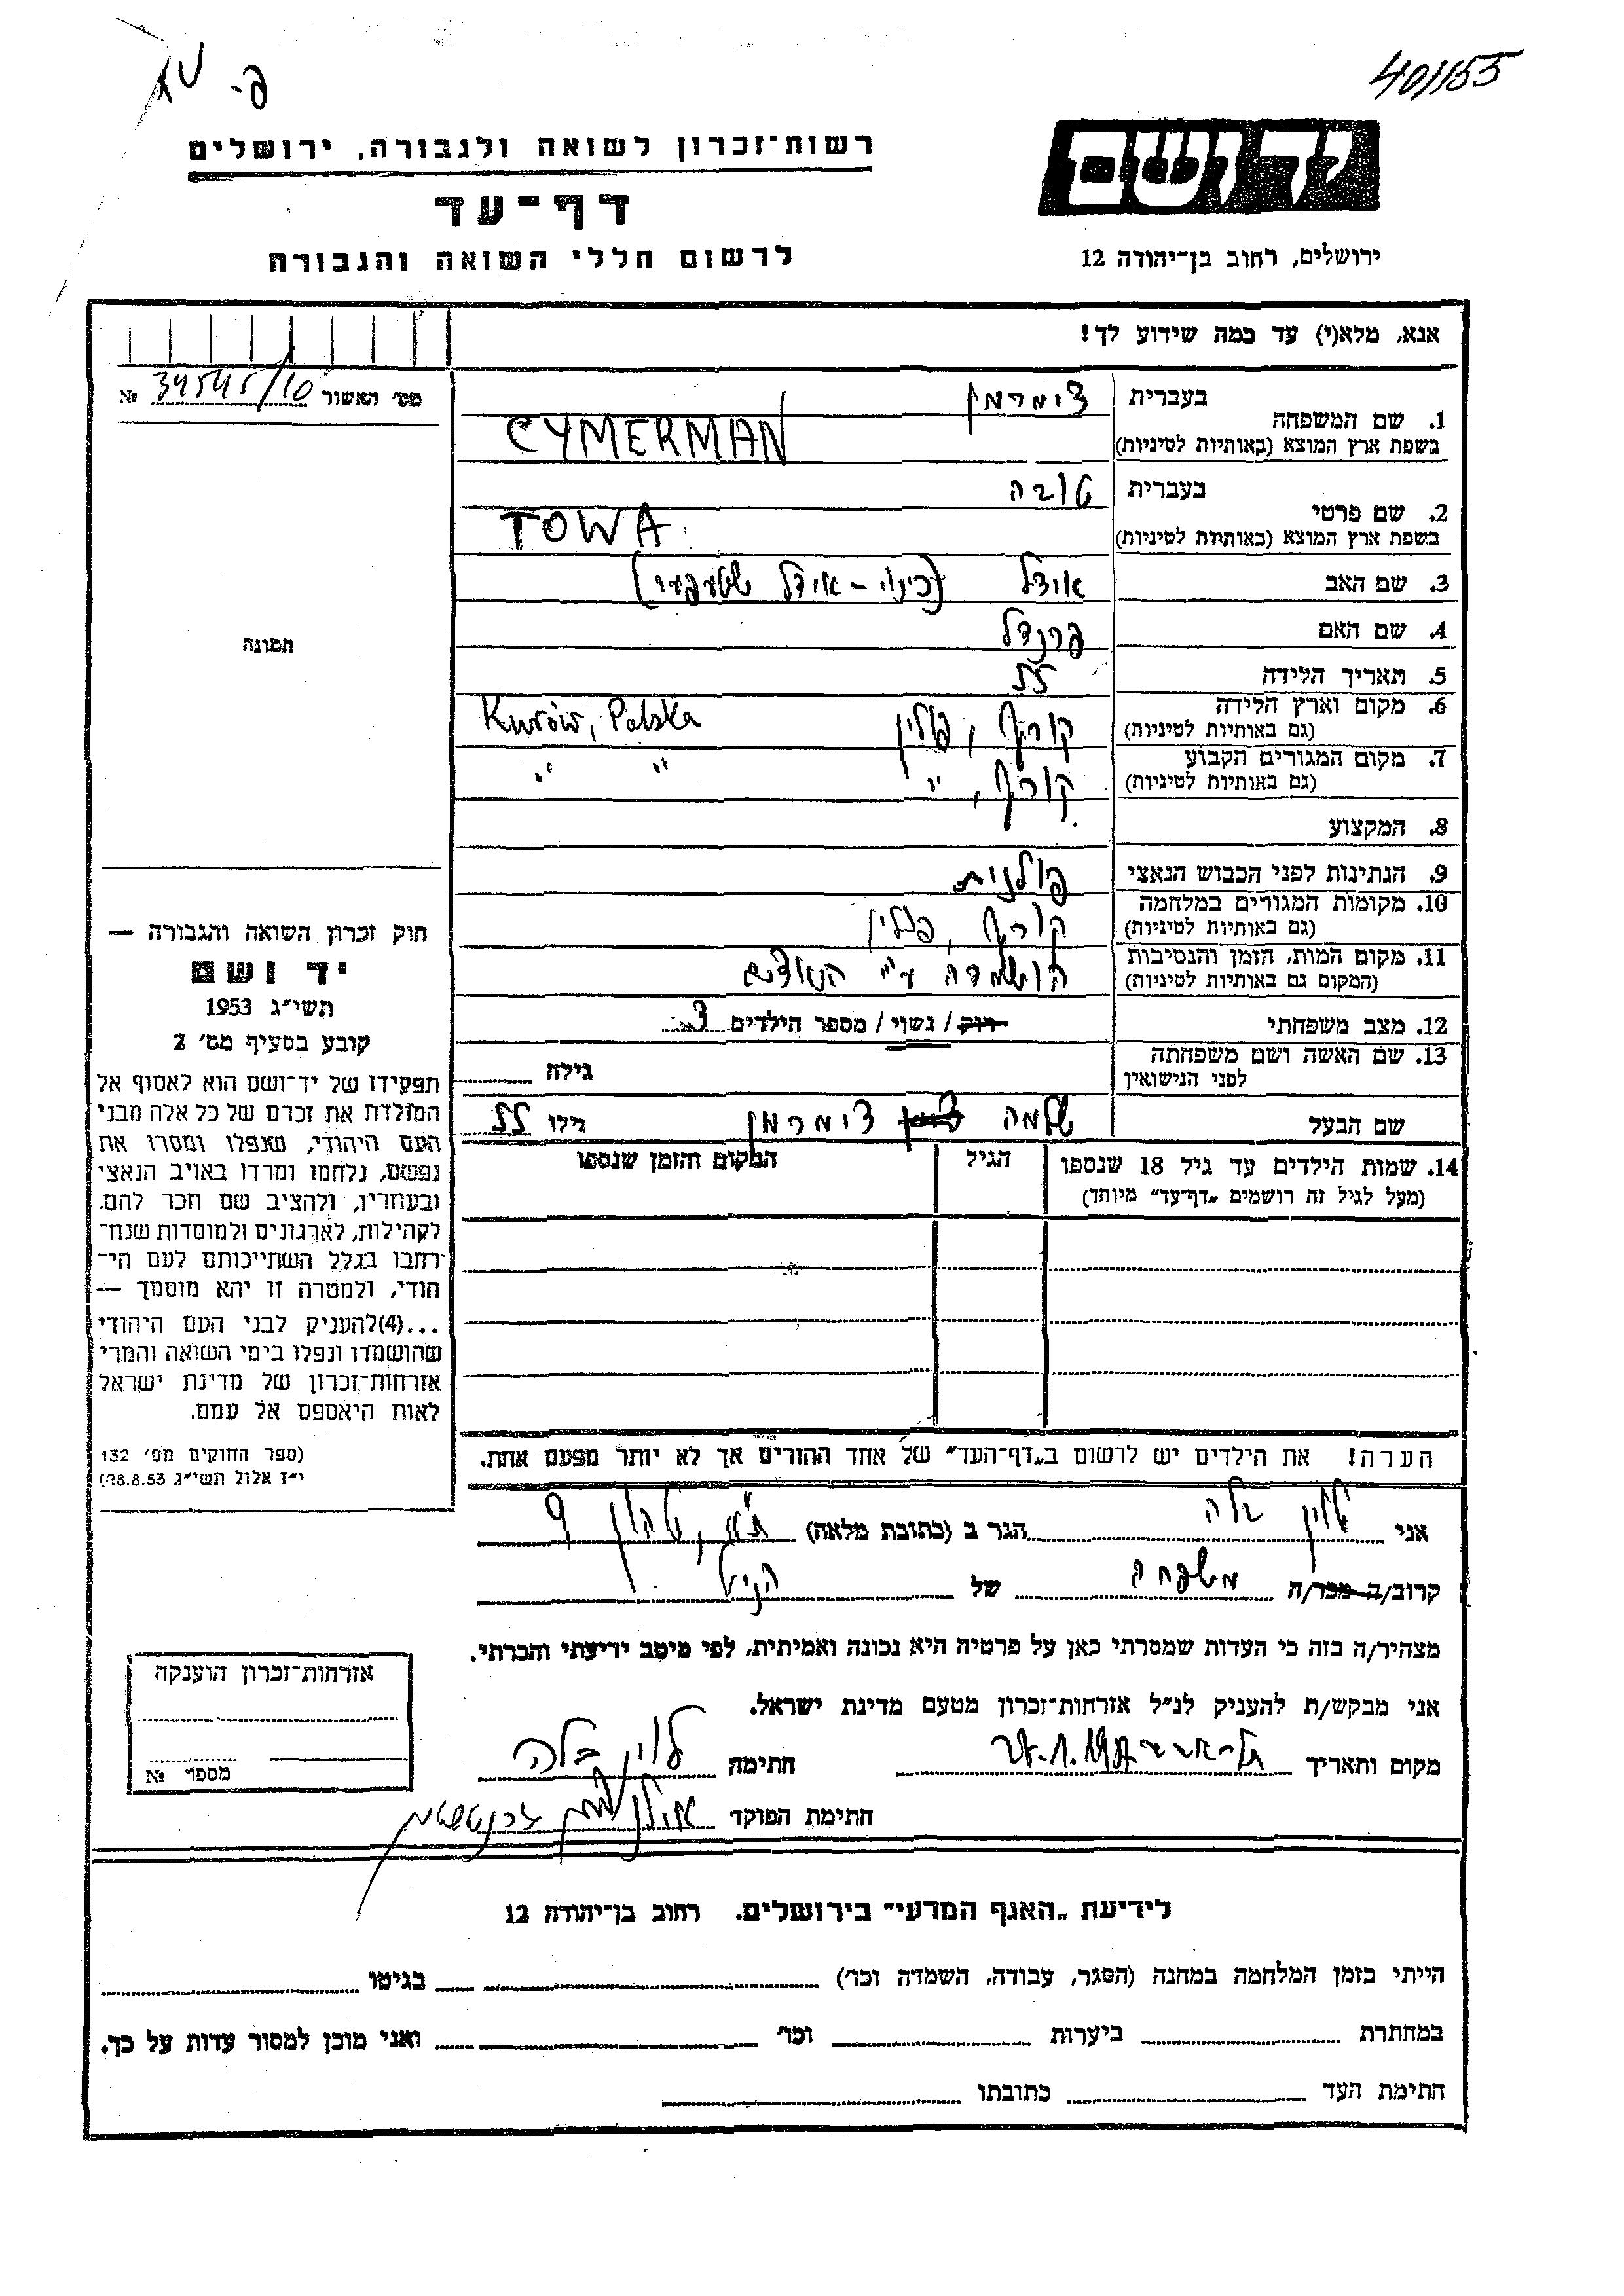 פ-
40/155
יד ושם
רשות-זכרון לשואה ולגבורה, ירושלים
דף-עד
לרשום חללי השואה והגבורה
ירושלים, רחוב בן-יהודה 12
אנא, מלא(י) עד כמה שידוע לך!
מס׳ האשור 34545/10 №
בעברית צימרמן
1. שם המשפחה
בשפת ארץ המוצא (באותיות לטיניות) CYMERMAN
בעברית טובה
2. שם פרטי
בשפת ארץ המוצא (באותיות לטיניות) TOWA
3. שם האב אידל (כינוי - אידל
4. שם האם פרנדל
5. תאריך הלידה 55
6. מקום וארץ הלידה
(גם באותיות לטיניות) קורוב, פולין Kurów, Polska
7. מקום המגורים הקבוע
(גם באותיות לטיניות) קורוב, " " "
8. המקצוע
9. הנתינות לפני הכבוש הנאצי פולנית
10. מקומות המגורים במלחמה
(גם באותיות לטיניות) קורוב, פולין
11. מקום המות, הזמן והנסיבות
(המקום גם באותיות לטיניות) הושמדה ע"י הנאצים
12. מצב משפחתי רוק / נשוי / מספר הילדים 3
13. שם האשה ושם משפחתה
לפני הנישואין גילה
שם הבעל שלמה צימרמן גילו 55
14. שמות הילדים עד גיל 18 שנספו
(מעל לגיל זה רושמים „דף-עד" מיוחד)
הגיל
המקום והזמן שנספו
הערה! את הילדים יש לרשום ב„דף-העד" של אחד ההורים אך לא יותר מפעם אחת.
תמונה
חוק זכרון השואה והגבורה —
יד ושם
תשי"ג 1953
קובע בסעיף מס׳ 2
תפקידו של יד-ושם הוא לאסוף אל
המולדת את זכרם של כל אלה מבני
העם היהודי, שנפלו ומסרו את
נפשם, נלחמו ומרדו באויב הנאצי
ובעוזריו, ולהציב שם וזכר להם,
לקהילות, לארגונים ולמוסדות שנח-
רבו בגלל השתייכותם לעם הי-
הודי, ולמטרה זו יהא מוסמך —
...(4)להעניק לבני העם היהודי
שהושמדו ונפלו בימי השואה והמרי
אזרחות-זכרון של מדינת ישראל
לאות היאספם אל עמם.
(ספר החוקים מס׳ 132
י"ז אלול תשי"ג 28.8.53)
אני לוין בלה הגר ב (כתובת מלאה) ת"א, 9
קרוב/ה מכר/ה משפחה של הנ"ל
מצהיר/ה בזה כי העדות שמסרתי כאן על פרטיה היא נכונה ואמיתית, לפי מיטב ידיעתי והכרתי.
אני מבקש/ת להעניק לנ"ל אזרחות-זכרון מטעם מדינת ישראל.
מקום ותאריך תל-אביב חתימה לוין בלה
חתימת הפוקד
אזרחות-זכרון הוענקה
מספר №
לידיעת „האגף המדעי" בירושלים. רחוב בן-יהודה 12
הייתי בזמן המלחמה במחנה (הסגר, עבודה, השמדה וכו׳) בגיטו
במחתרת ביערות וכו׳ ואני מוכן למסור עדות על כך.
חתימת העד כתובתו